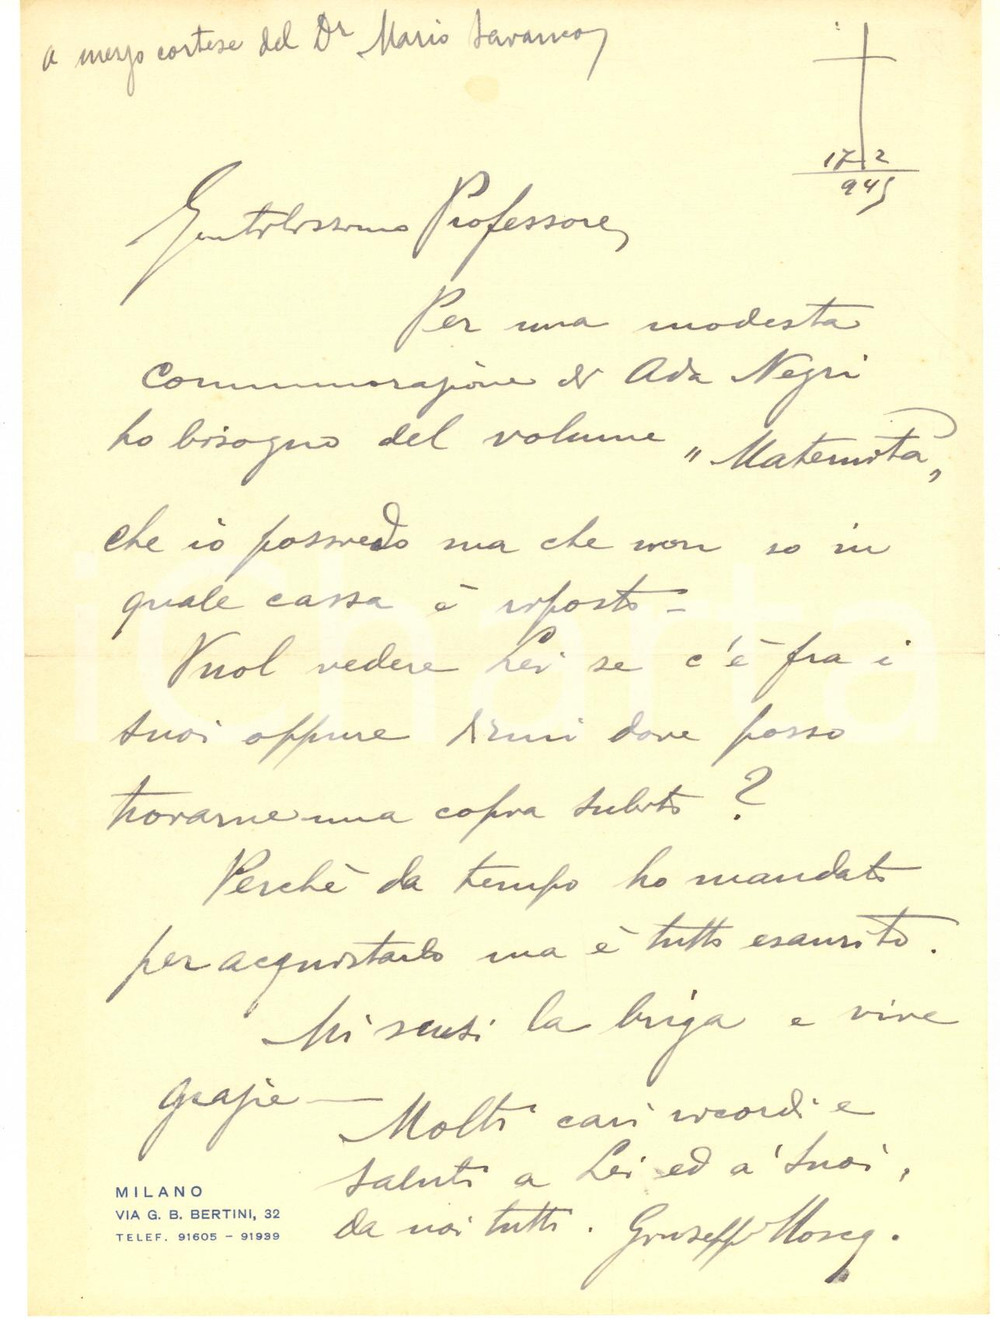 a mezzo cortese del Dr Mario
17 2
945
Gentilissimo Professore,
Per una modesta
commemorazione di Ada Negri
ho bisogno del volume "Maternità"
che io possiedo ma che non so in
quale cassa è riposto -
Vuol vedere Lei se c'è fra i
suoi oppure dirmi dove posso
trovarne una copia subito ?
Perchè da tempo ho mandato
per acquistarlo ma è tutto esaurito.
Mi scusi la briga e vive
grazie —
Molti cari ricordi e
saluti a Lei ed a' Suoi,
da noi tutti. Giuseppe
MILANO
VIA G. B. BERTINI, 32
TELEF. 91605 - 91939
iCharta